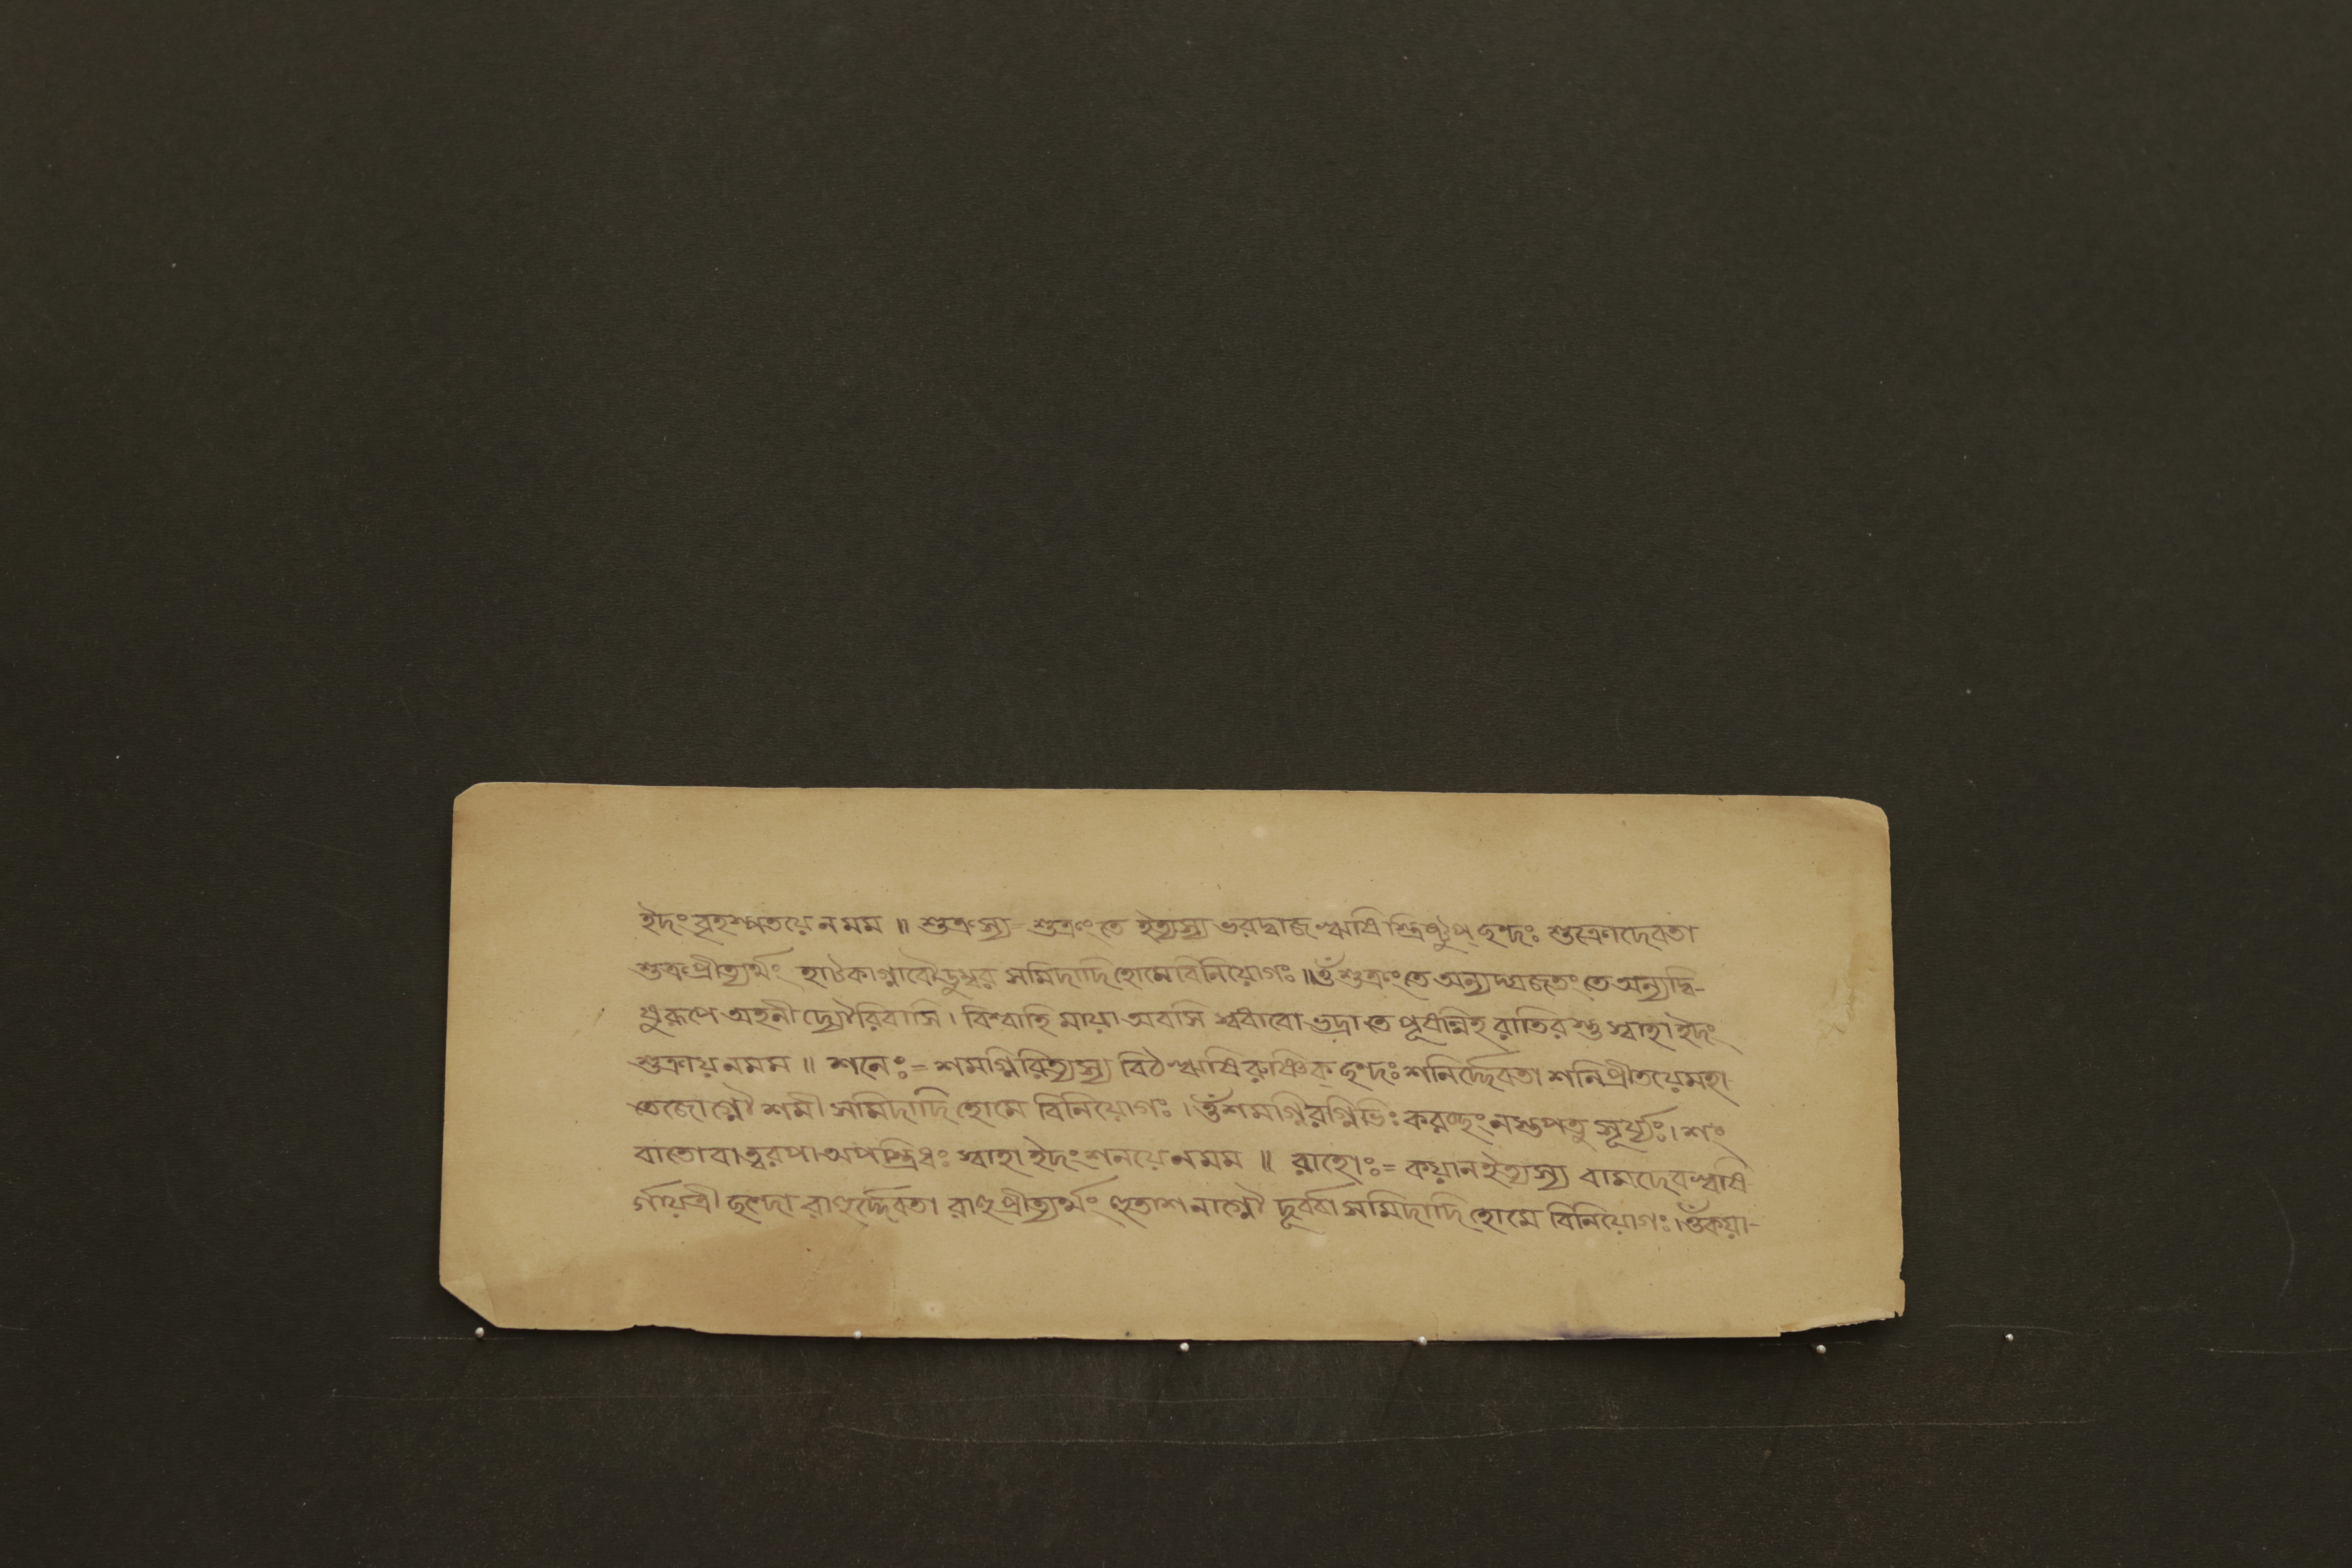 ইদং বৃহস্পতয়ে ন মম ॥ শুক্রস্য = শুক্রং তে ইত্যস্য ভরদ্বাজ ঋষি স্ত্রিষ্টুপ্ ছন্দঃ শুক্রোদেবতা
শুক্রপ্রীত্যর্থং হাটকাগ্নাবৌডুম্বর সমিদাদি হোমে বিনিয়োগঃ ॥ ওঁ শুক্রং তে অন্যদ্যজতং তে অন্যদ্বি-
ষুরূপে অহনী দ্যৌরিবাসি । বিশ্বাহি মায়া অবসি স্বধাবো ভদ্রা তে পূষন্নিহ রাতিরস্তু স্বাহা ইদং
শুক্রায় ন মম ॥ শনেঃ = শমগ্নিরিত্যস্য বিঠ ঋষি রুষ্ণিক্ ছন্দঃ শনির্দ্দেবতা শনিপ্রীতয়ে মহা-
তেজোগ্নৌ শমী সমিদাদি হোমে বিনিয়োগঃ । ওঁ শমগ্নিরগ্নিভিঃ করচ্ছং নস্তপতু সূর্য্যঃ । শং
বাতো বাত্বরপা অপস্ত্রিধঃ স্বাহা ইদং শনয়ে ন মম ॥ রাহোঃ = কয়ান ইত্যস্য বামদেব ঋষি
র্গায়ত্রী ছন্দো রাহুর্দ্দেবতা রাহুপ্রীত্যর্থং হুতাশনাগ্নৌ দূর্ব্বা সমিদাদি হোমে বিনিয়োগঃ । ওঁ কয়া-